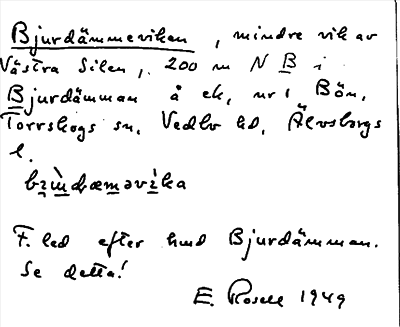 Bjurdämmeviken, mindre vik av
Västra Silen, 200 m N B i
Bjurdämman å ek, nr 1 Bön,
Torrskogs sn, Vedbo hd, Älvsborgs
l.
F. led efter hmd Bjurdämman.
Se detta!
E. Rosell 1949